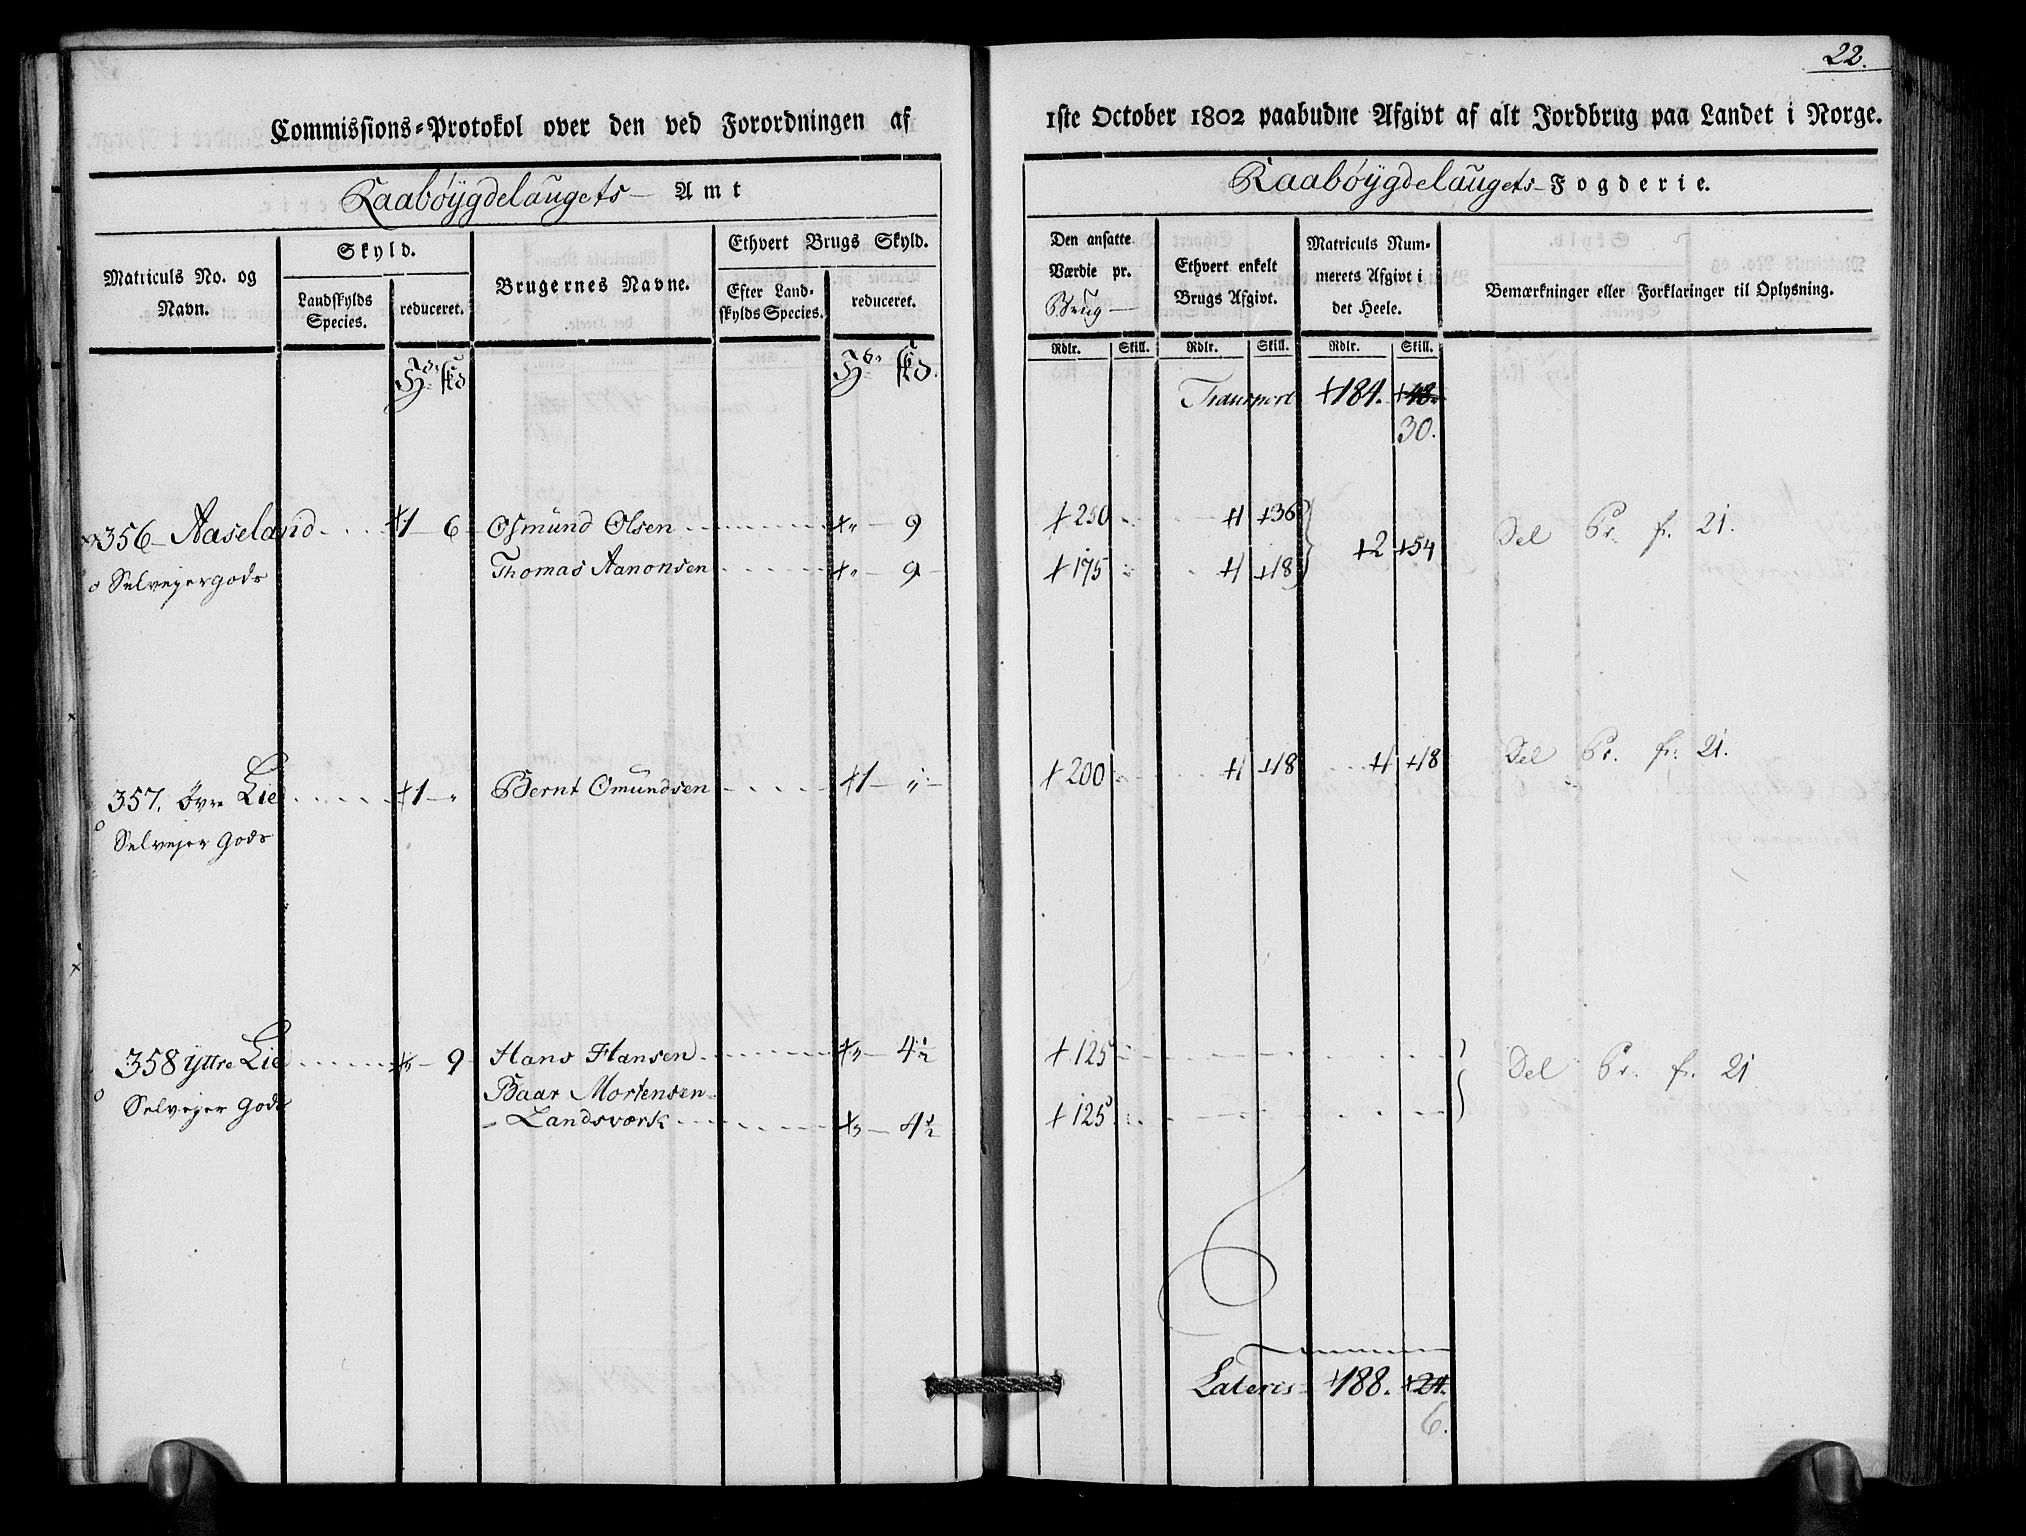 22.
Commissions-Protokol over den ved Forordningen af 1ste October 1802 paabudne Afgivt af alt Jordbrug paa Landet i Norge.
Raabøygdelaugets Amt
Raabøygdelaugets Fogderie.
Matriculs No. og Navn.
Skyld.
Landskylds Species.
reduceret.
Brugernes Navne.
Ethvert Brugs Skyld.
Efter Landskylds Species.
reduceret.
Den ansatte Værdie pr. Brug
Ethvert enkelt Brugs Afgivt.
Matriculs Nummerets Afgivt i det Heele.
Bemærkninger eller Forklaringer til Oplysning.
Rdlr. Skill. Rdlr. Skill. Rdlr. Skill.
Transport +184. +48.
30.
356 Aaseland +1 6 Osmund Olsen +" 9 +250 +1 +36
+2 +54 Del Pr. f. 21.
Selvejergods Thomas Aanonsen +" 9 +175 +1 +18
357. Øvre Lie +1 " Bernt Omundsen +1 " +200 +1 +18 +1 +18 Del Pr. f. 21.
Selvejer Gods
358 Yttre Lie +" 9 Hans Hansen +" 4½ +125 Del Pr. f. 21
Selvejer Gods Baar Mortensen
Landsværk +" 4½ +125
Lateris +188. +24.
6.